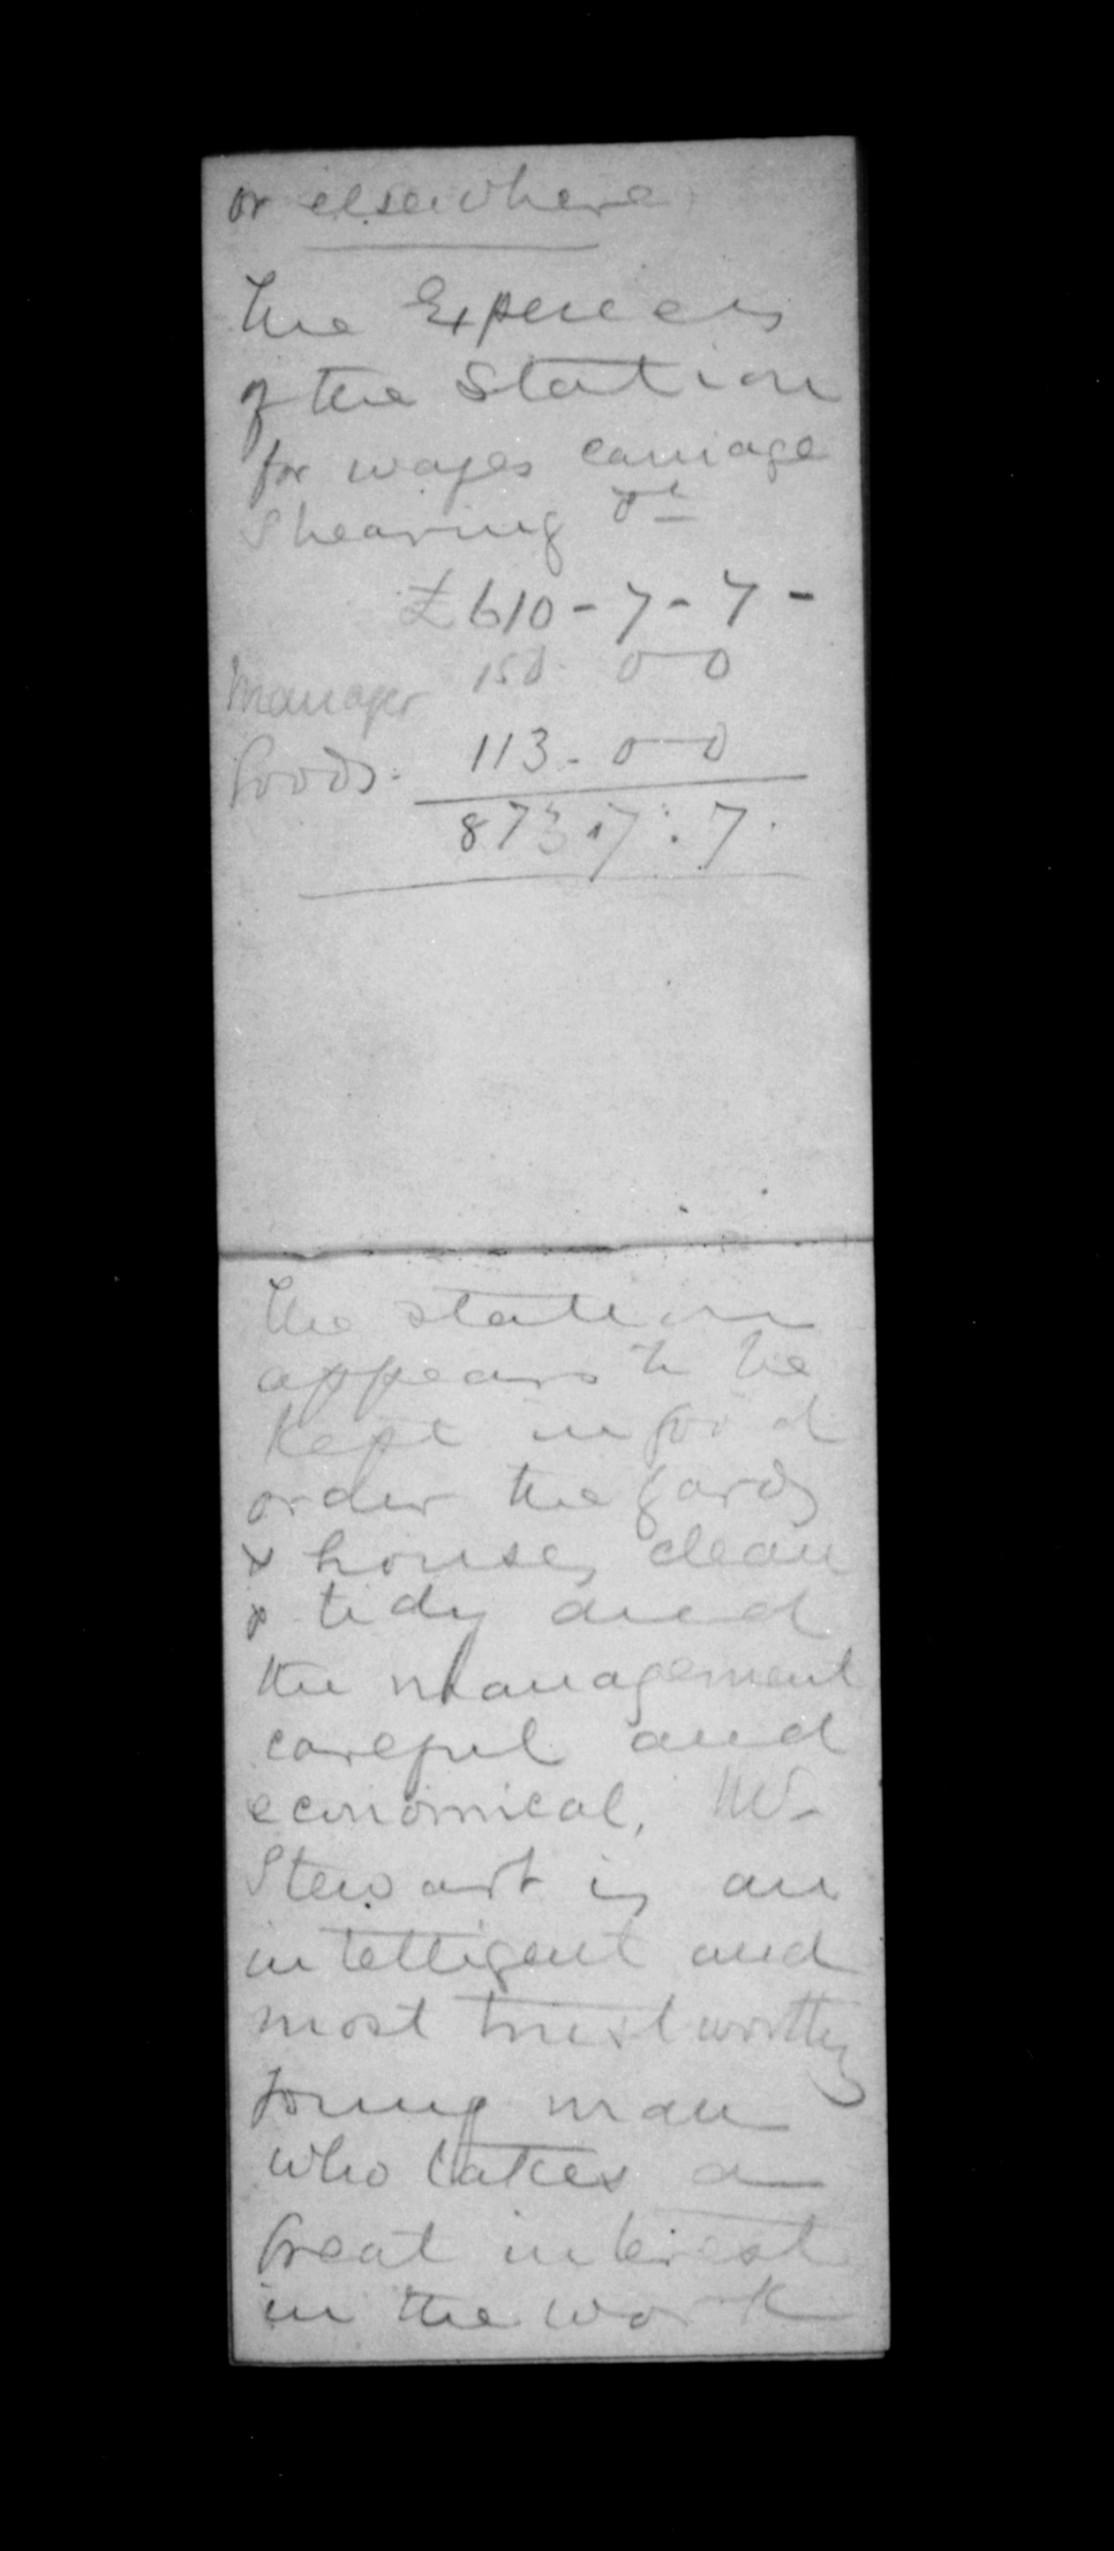 or elsewhere
The Expences
of the Station
for wages carriage
Shearing &c
£610-7-7-
Manager 150 0-0
Goods. 113-0-0
873.7:7.
The station
appears to be
kept in good
order the yards
& houses clean
& tidy and
the management
careful and
economical, Mr
Stewart is an
intelligent and
most trustworthy
young man
who takes a
great interest
in the work